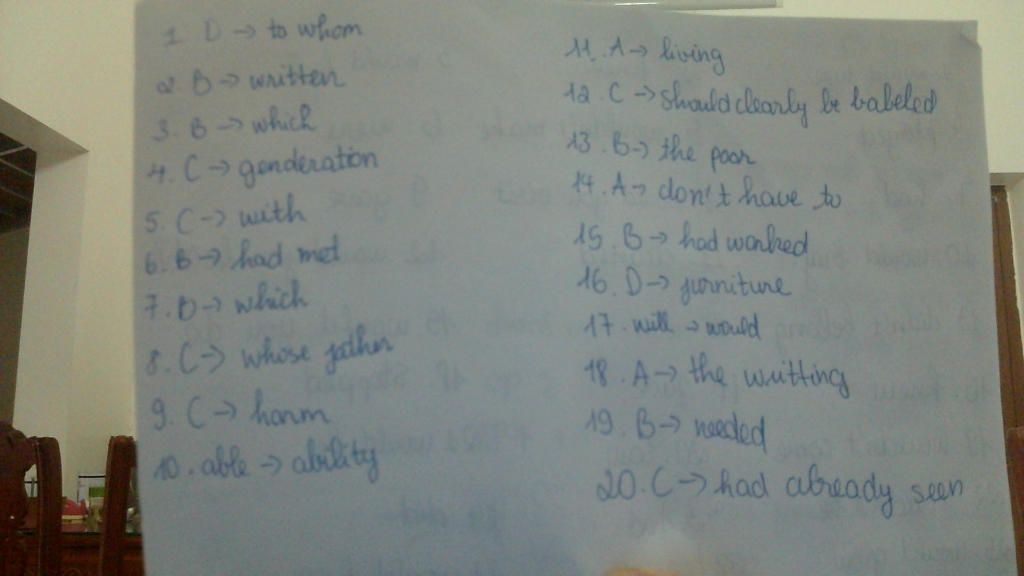 1 D → to whom
2. B → written
3. B → which
4. C → genderation
5. C → with
6. B → had met
7. D → which
8. C → whose father
9. C → harm
10. able → ability
11. A → living
12. C → should clearly be babeled
13. B → the poor
14. A → don't have to
15. B → had worked
16. D → furniture
17. will → would
18. A → the writting
19. B → needed
20. C → had already seen